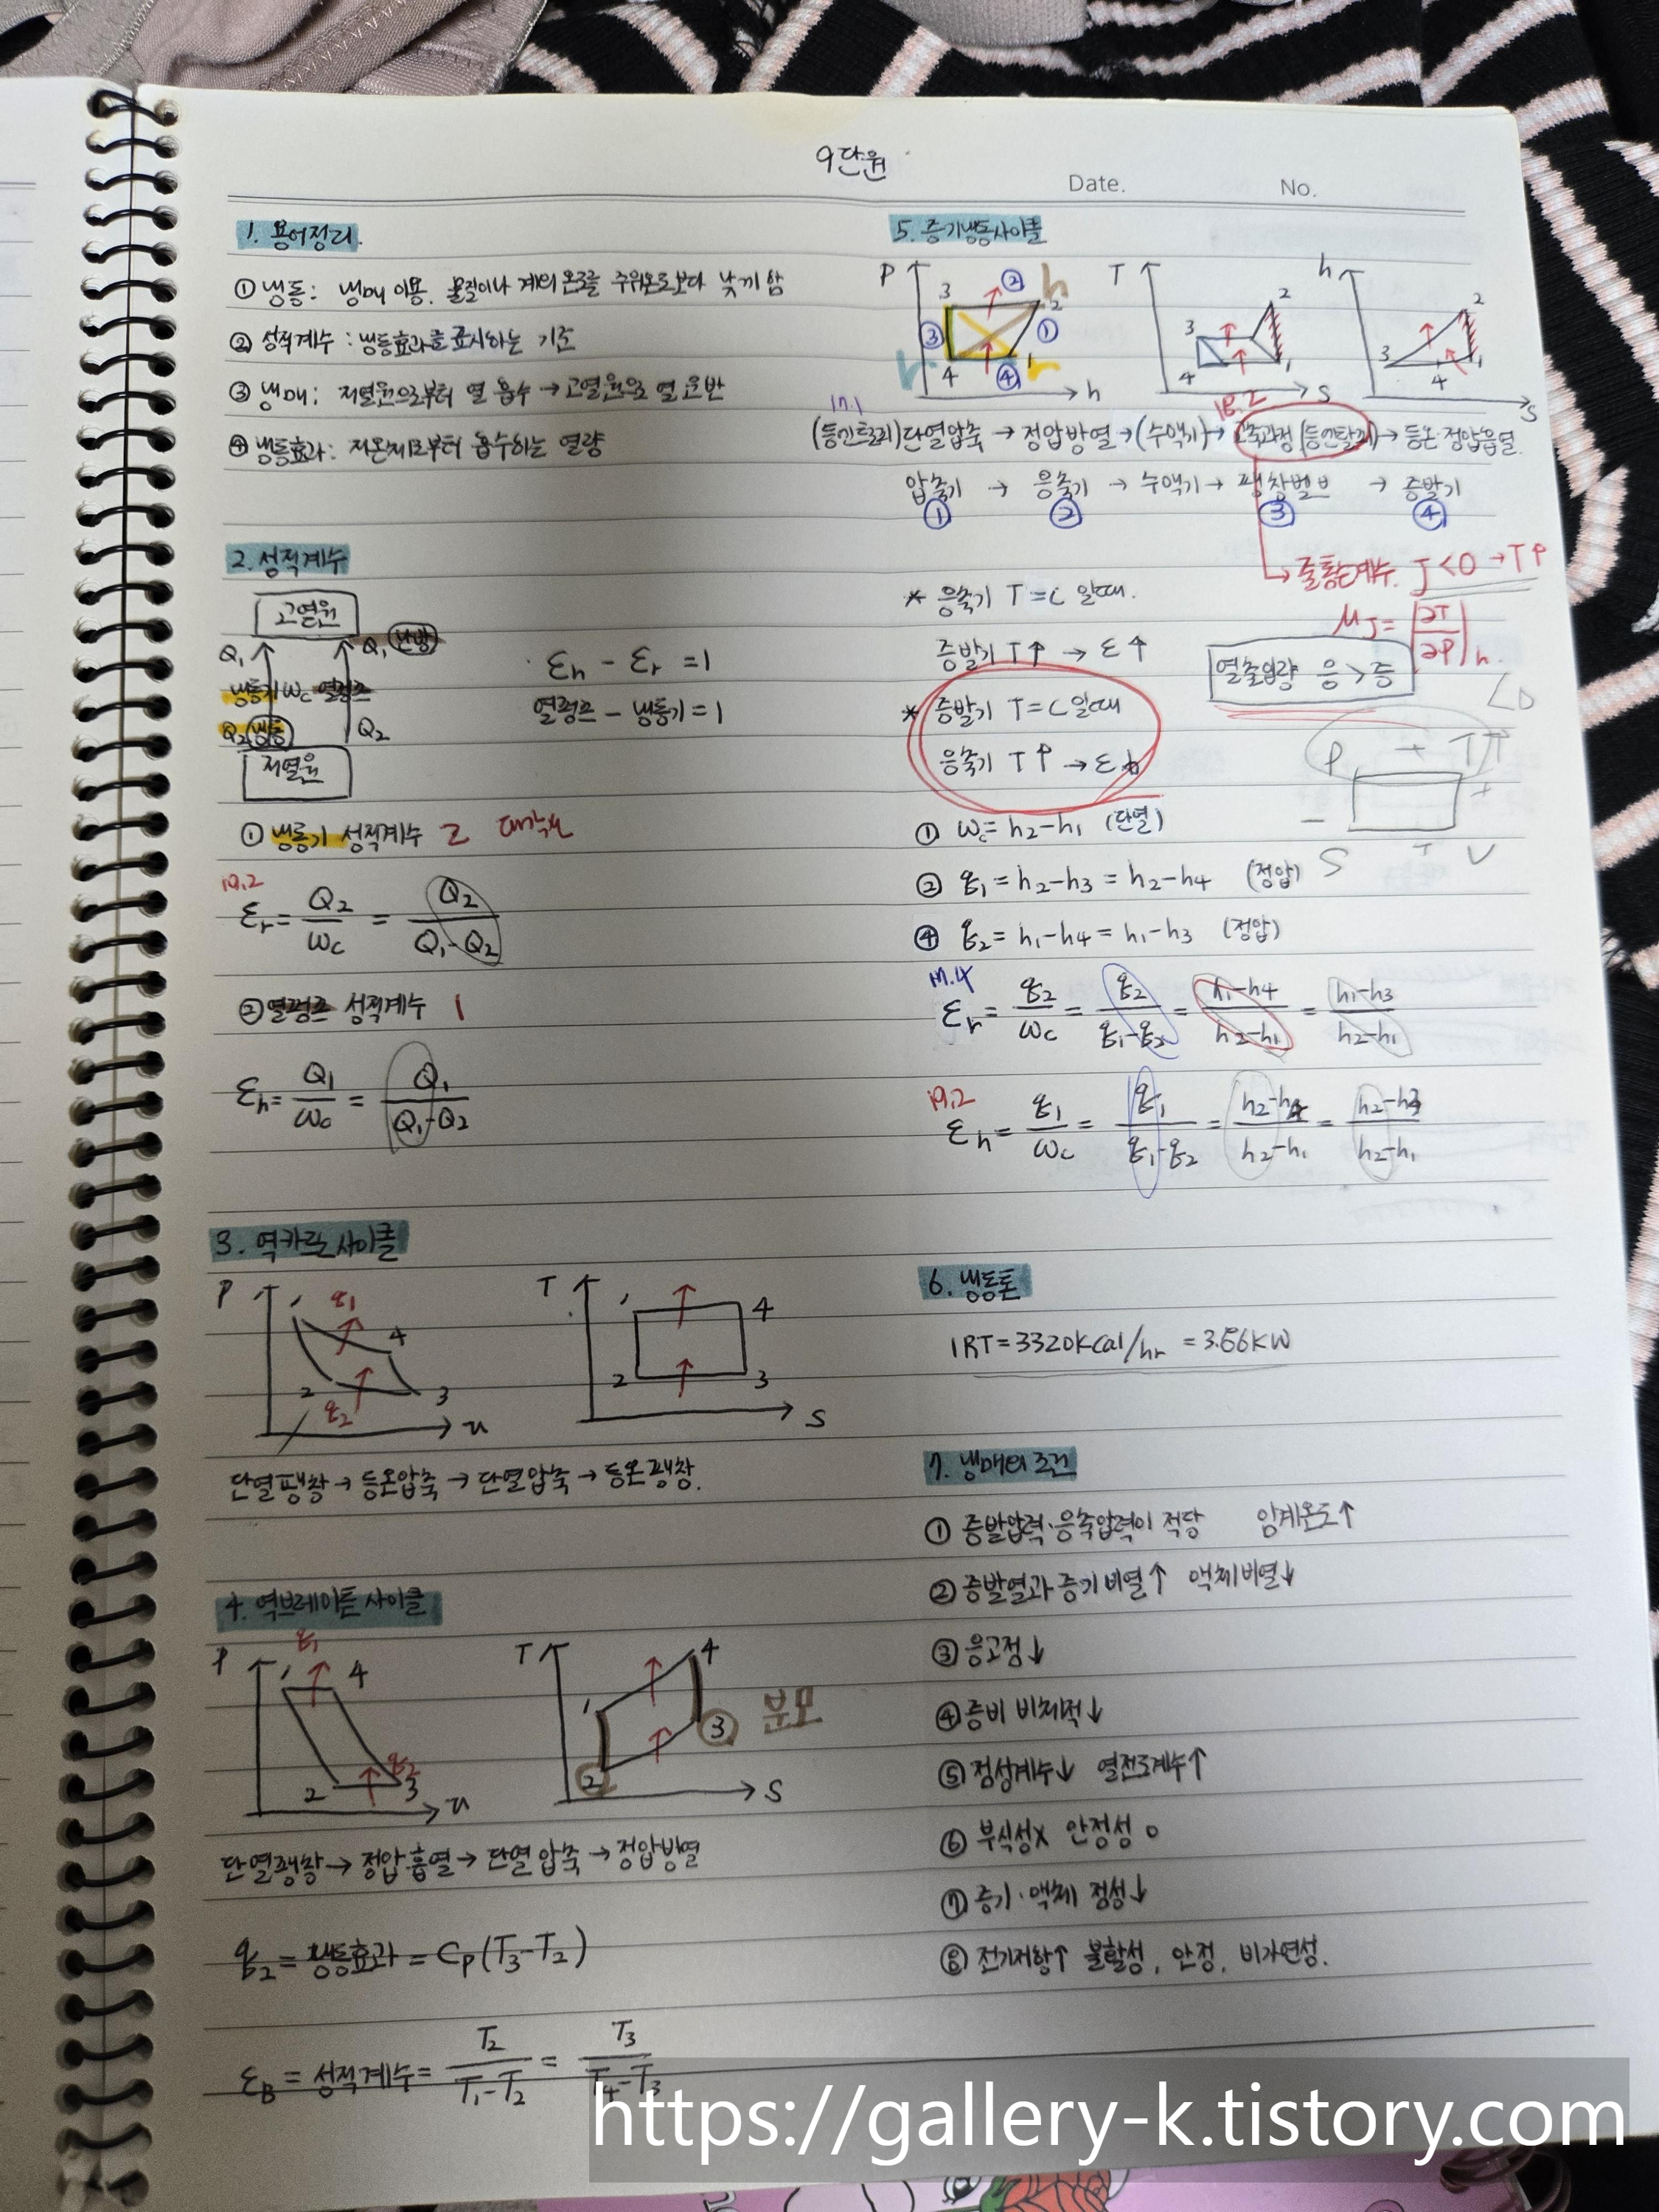 9단원
Date. No.
1. 용어정리.
① 냉동: 냉매 이용. 물질이나 계의 온도를 주위온도보다 낮게 함
② 성적계수 : 냉동효과를 표시하는 기준
③ 냉매: 저열원으로부터 열 흡수 → 고열원으로 열 운반
④ 냉동효과: 저온체로부터 흡수하는 열량
2. 성적계수
고열원
Q₁ Q₁ 난방
냉동기 Wc 열펌프
Q₂ 냉동 Q₂
저열원
εh - εr = 1
열펌프 - 냉동기 = 1
① 냉동기 성적계수 2
19.2
εr = Q₂/Wc = Q₂/(Q₁-Q₂)
② 열펌프 성적계수 1
εh = Q₁/Wc = Q₁/(Q₁-Q₂)
3. 역카르노 사이클
P 1 q₁ 4 2 q₂ 3 v
T 1 4 2 3 s
단열팽창 → 등온압축 → 단열압축 → 등온팽창.
4. 역브레이튼 사이클
P q₁ 1 4 2 q₂ 3 v
T 1 4 2 3 분모 s
단열팽창 → 정압흡열 → 단열압축 → 정압방열
q₂ = 냉동효과 = Cp(T₃-T₂)
εB = 성적계수 = T₂/(T₁-T₂) = T₃/(T₄-T₃)
5. 증기냉동사이클
P 3 ② h 2 ③ ① r 4 ④ 1 r h
T 2 3 4 1 s
h 2 3 4 1 s
17.1 18.2
(등엔트로피)단열압축 → 정압방열 → (수액기) → 교축과정(등엔탈피) → 등온·정압흡열.
압축기 → 응축기 → 수액기 → 팽창밸브 → 증발기
① ② ③ ④
→ 줄톰슨계수. J<0 → T↑
μJ = |∂T/∂P|h
* 응축기 T=C 일때.
증발기 T↑ → ε↑
열출입량 응>증
<0
* 증발기 T=C 일때
응축기 T↑ → ε↓
P + T
- +
S - V
① Wc = h₂-h₁ (단열)
② q₁ = h₂-h₃ = h₂-h₄ (정압)
④ q₂ = h₁-h₄ = h₁-h₃ (정압)
17.4
εr = q₂/Wc = q₂/(q₁-q₂) = (h₁-h₄)/(h₂-h₁) = (h₁-h₃)/(h₂-h₁)
19.2
εh = q₁/Wc = q₁/(q₁-q₂) = (h₂-h₄)/(h₂-h₁) = (h₂-h₃)/(h₂-h₁)
6. 냉동톤
1RT = 3320kcal/hr = 3.86kW
7. 냉매의 조건
① 증발압력·응축압력이 적당 임계온도↑
② 증발열과 증기비열↑ 액체비열↓
③ 응고점↓
④ 증비 비체적↓
⑤ 점성계수↓ 열전도계수↑
⑥ 부식성x 안정성 o
⑦ 증기·액체 점성↓
⑧ 전기저항↑ 불활성, 안정, 비가연성.
https://gallery-k.tistory.com